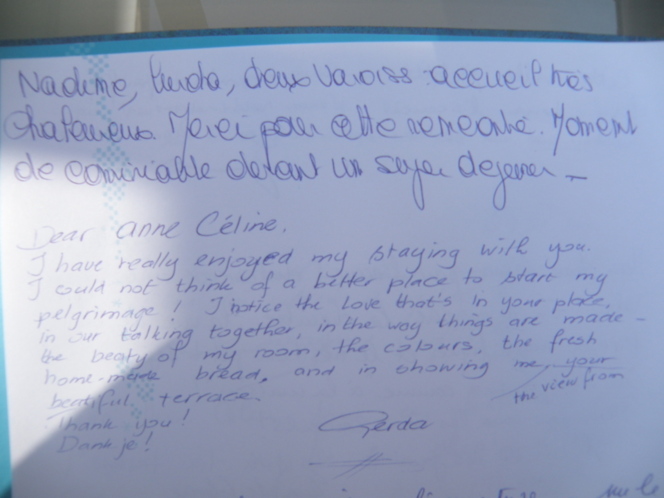 Nadine, deux Varois : accueil très
chaleureux Merci pour cette rencontre. Moment
de convivialité devant un super dejeuner -
Dear Anne Céline.
I have really enjoyed my staying with you.
I could not think of a better place to start my
pelgrimage! I notice the Love that's in your place,
in our talking together, in the way things are made -
the beaty of my room, the colours, the fresh
home-made bread, and in showing me, your
the view from
beatiful terrace.
Thank you!
Dank je!
Gerda